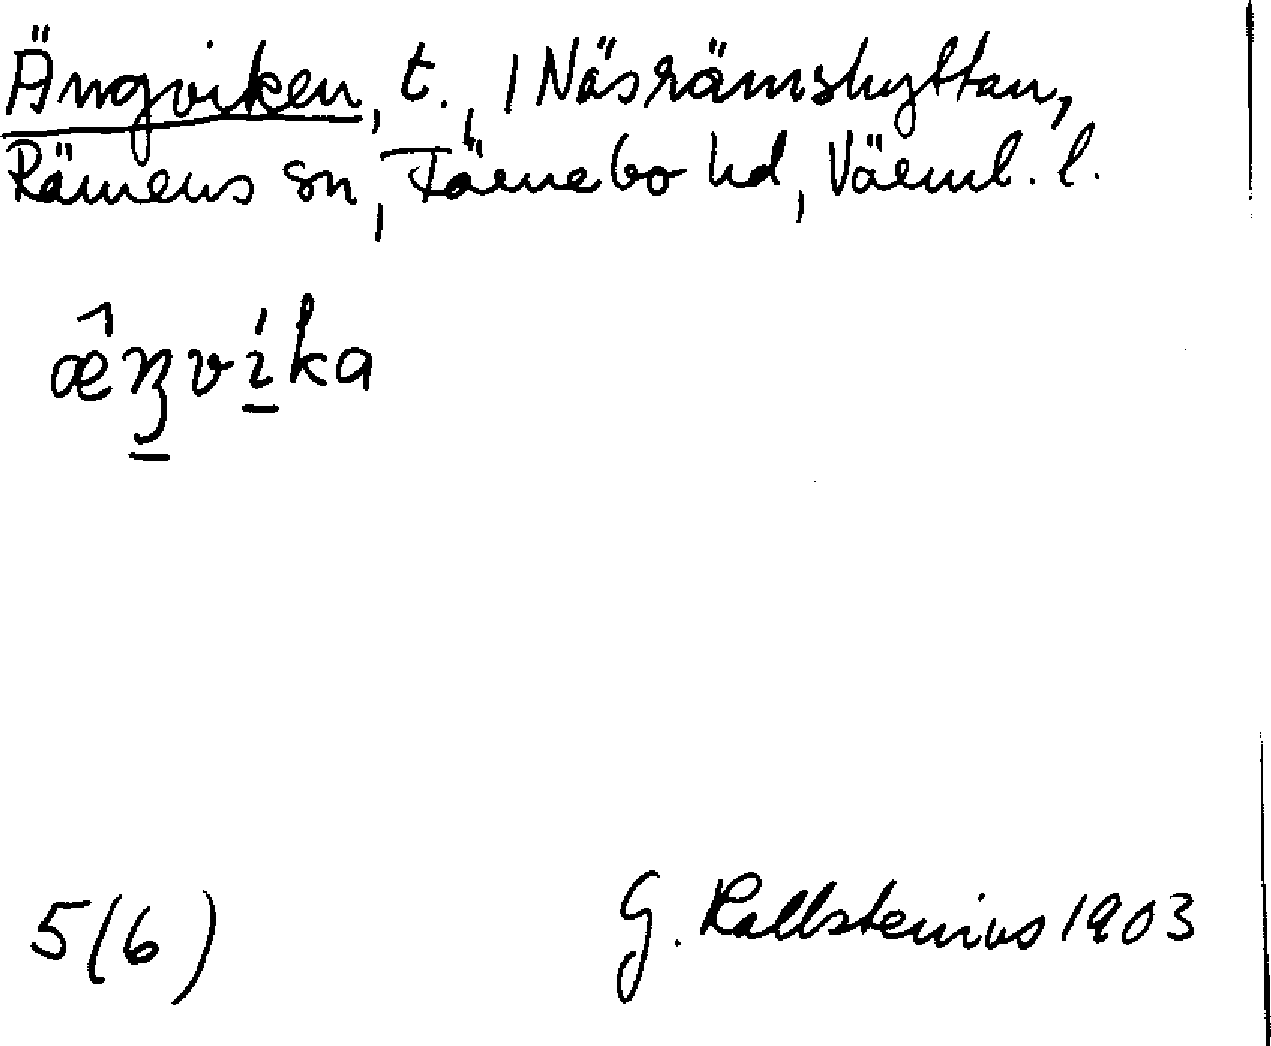 Ängviken, t., 1 Näsrämshyttan,
Rämens sn, Färnebo hd, Värml. l.
æ̂ŋvíka
5(6)
G. Kallstenius 1903